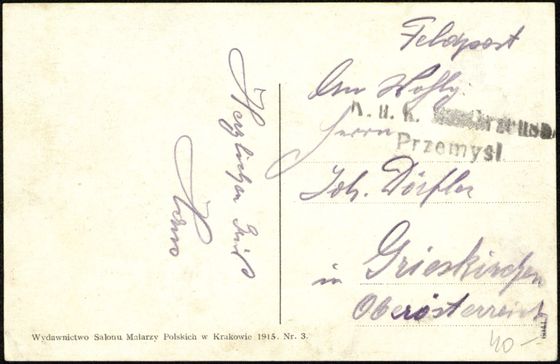 Feldpost
An Wohlg.
K. u. K.
Herrn
Przemysl
Joh. Dörfler
in Grieskirchen
Oberösterreich
Herzlichen Gruß
Hans
Wydawnictwo Salonu Malarzy Polskich w Krakowie 1915. Nr. 3.
40-